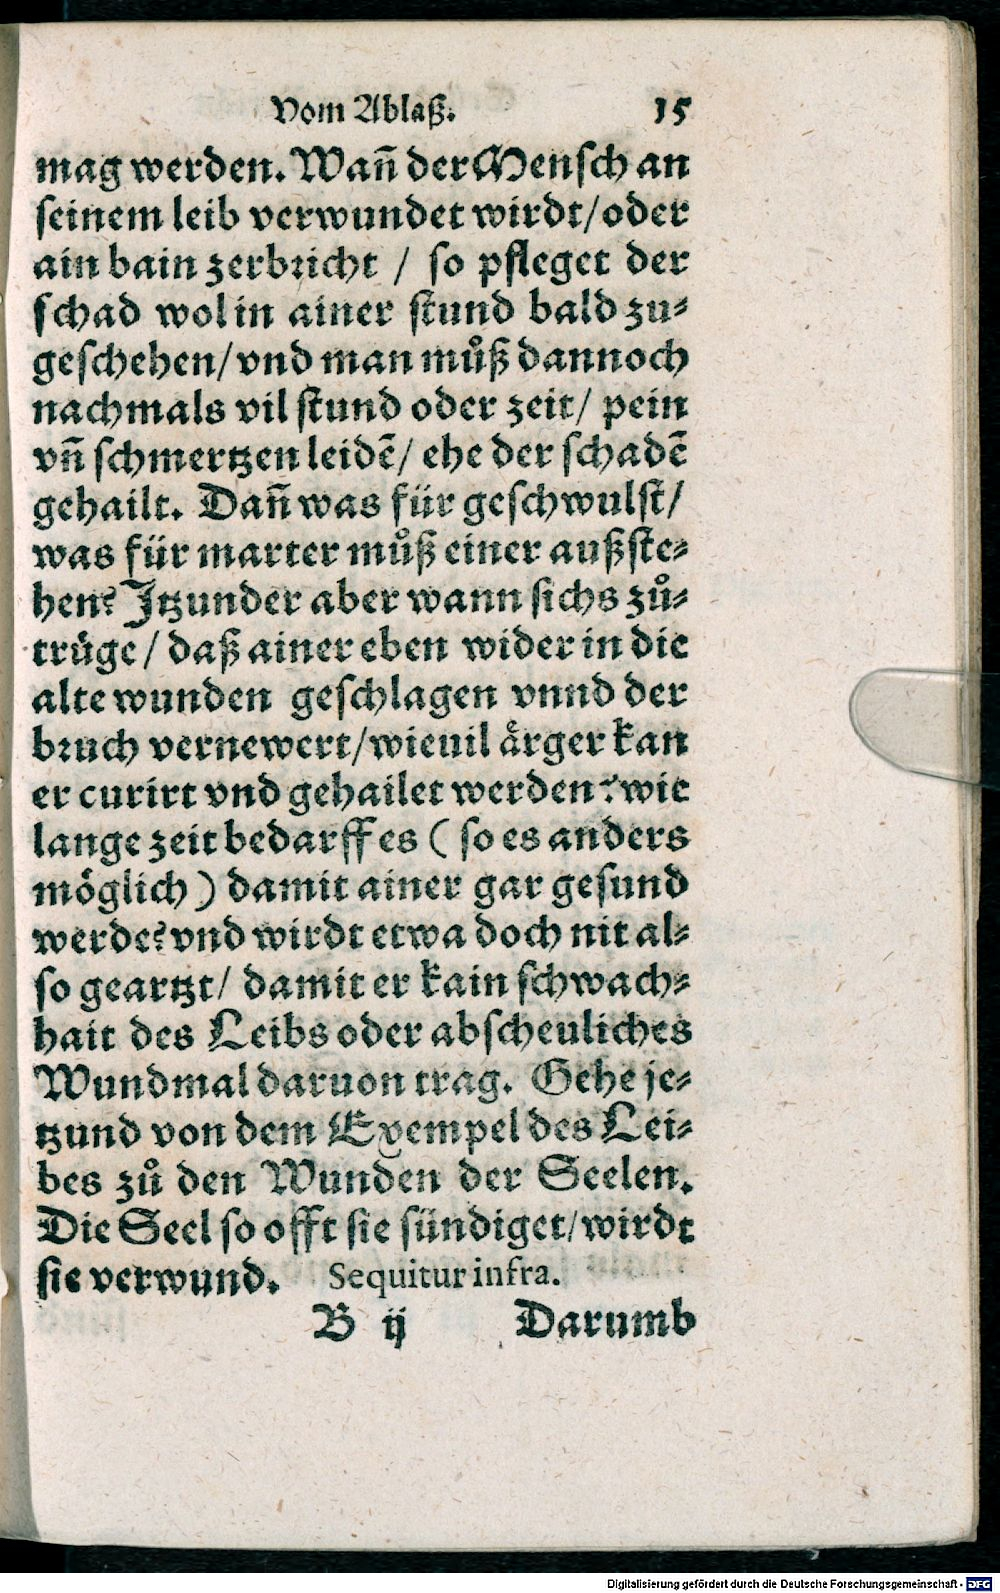 Vom Ablaß. 15
mag werden. Wañ der Mensch an
seinem leib verwundet wirdt/ oder
ain bain zerbricht / so pfleget der
schad wol in ainer stund bald zu⸗
geschehen/ vnd man můß dannoch
nachmals vil stund oder zeit/ pein
vñ schmertzen leidē/ ehe der schadē
gehailt. Dañ was für geschwulst/
was für marter můß einer außste⸗
hen? Jtzunder aber wann sichs zů⸗
trüge/ daß ainer eben wider in die
alte wunden geschlagen vnnd der
bruch vernewert/ wieuil aͤrger kan
er curirt vnd gehailet werden? wie
lange zeit bedarff es ( so es anders
moͤglich ) damit ainer gar gesund
werde? vnd wirdt etwa doch nit al⸗
so geartzt/ damit er kain schwach⸗
hait des Leibs oder abscheuliches
Wundmal daruon trag. Gehe je⸗
tzund von dem Exempel des Lei⸗
bes zů den Wunden der Seelen.
Die Seel so offt sie sündiget/ wirdt
sie verwund. Sequitur infra.
B ij Darumb
Digitalisierung gefördert durch die Deutsche Forschungsgemeinschaft - DFG